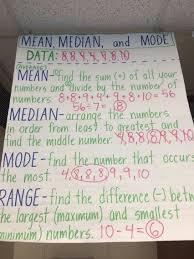 MEAN, MEDIAN, and MODE
DATA: 8, 8, 9, 4, 9, 8, 10
(AVERAGE)
MEAN - find the sum (+) of all your
numbers and divide by the number of
numbers. 8+8+9+4+9+8+10=56
56÷7=8
MEDIAN - arrange the numbers
in order from least to greatest and
find the middle number. 4,8,8,8,9,9,10
MODE - find the number that occurs
the most. 4,8,8,8,9,9,10
RANGE - find the difference (-) betw
the largest (maximum) and smallest
(minimum) numbers. 10-4=6